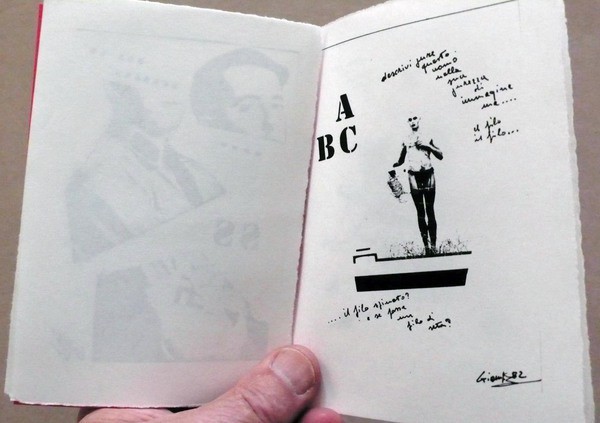 descrivi pure
questo
uomo
nella
sua
purezza
di
immagine
ma....
il filo
il filo...
A
BC
....il filo spinato?
o se fosse
un
filo di
seta?
82